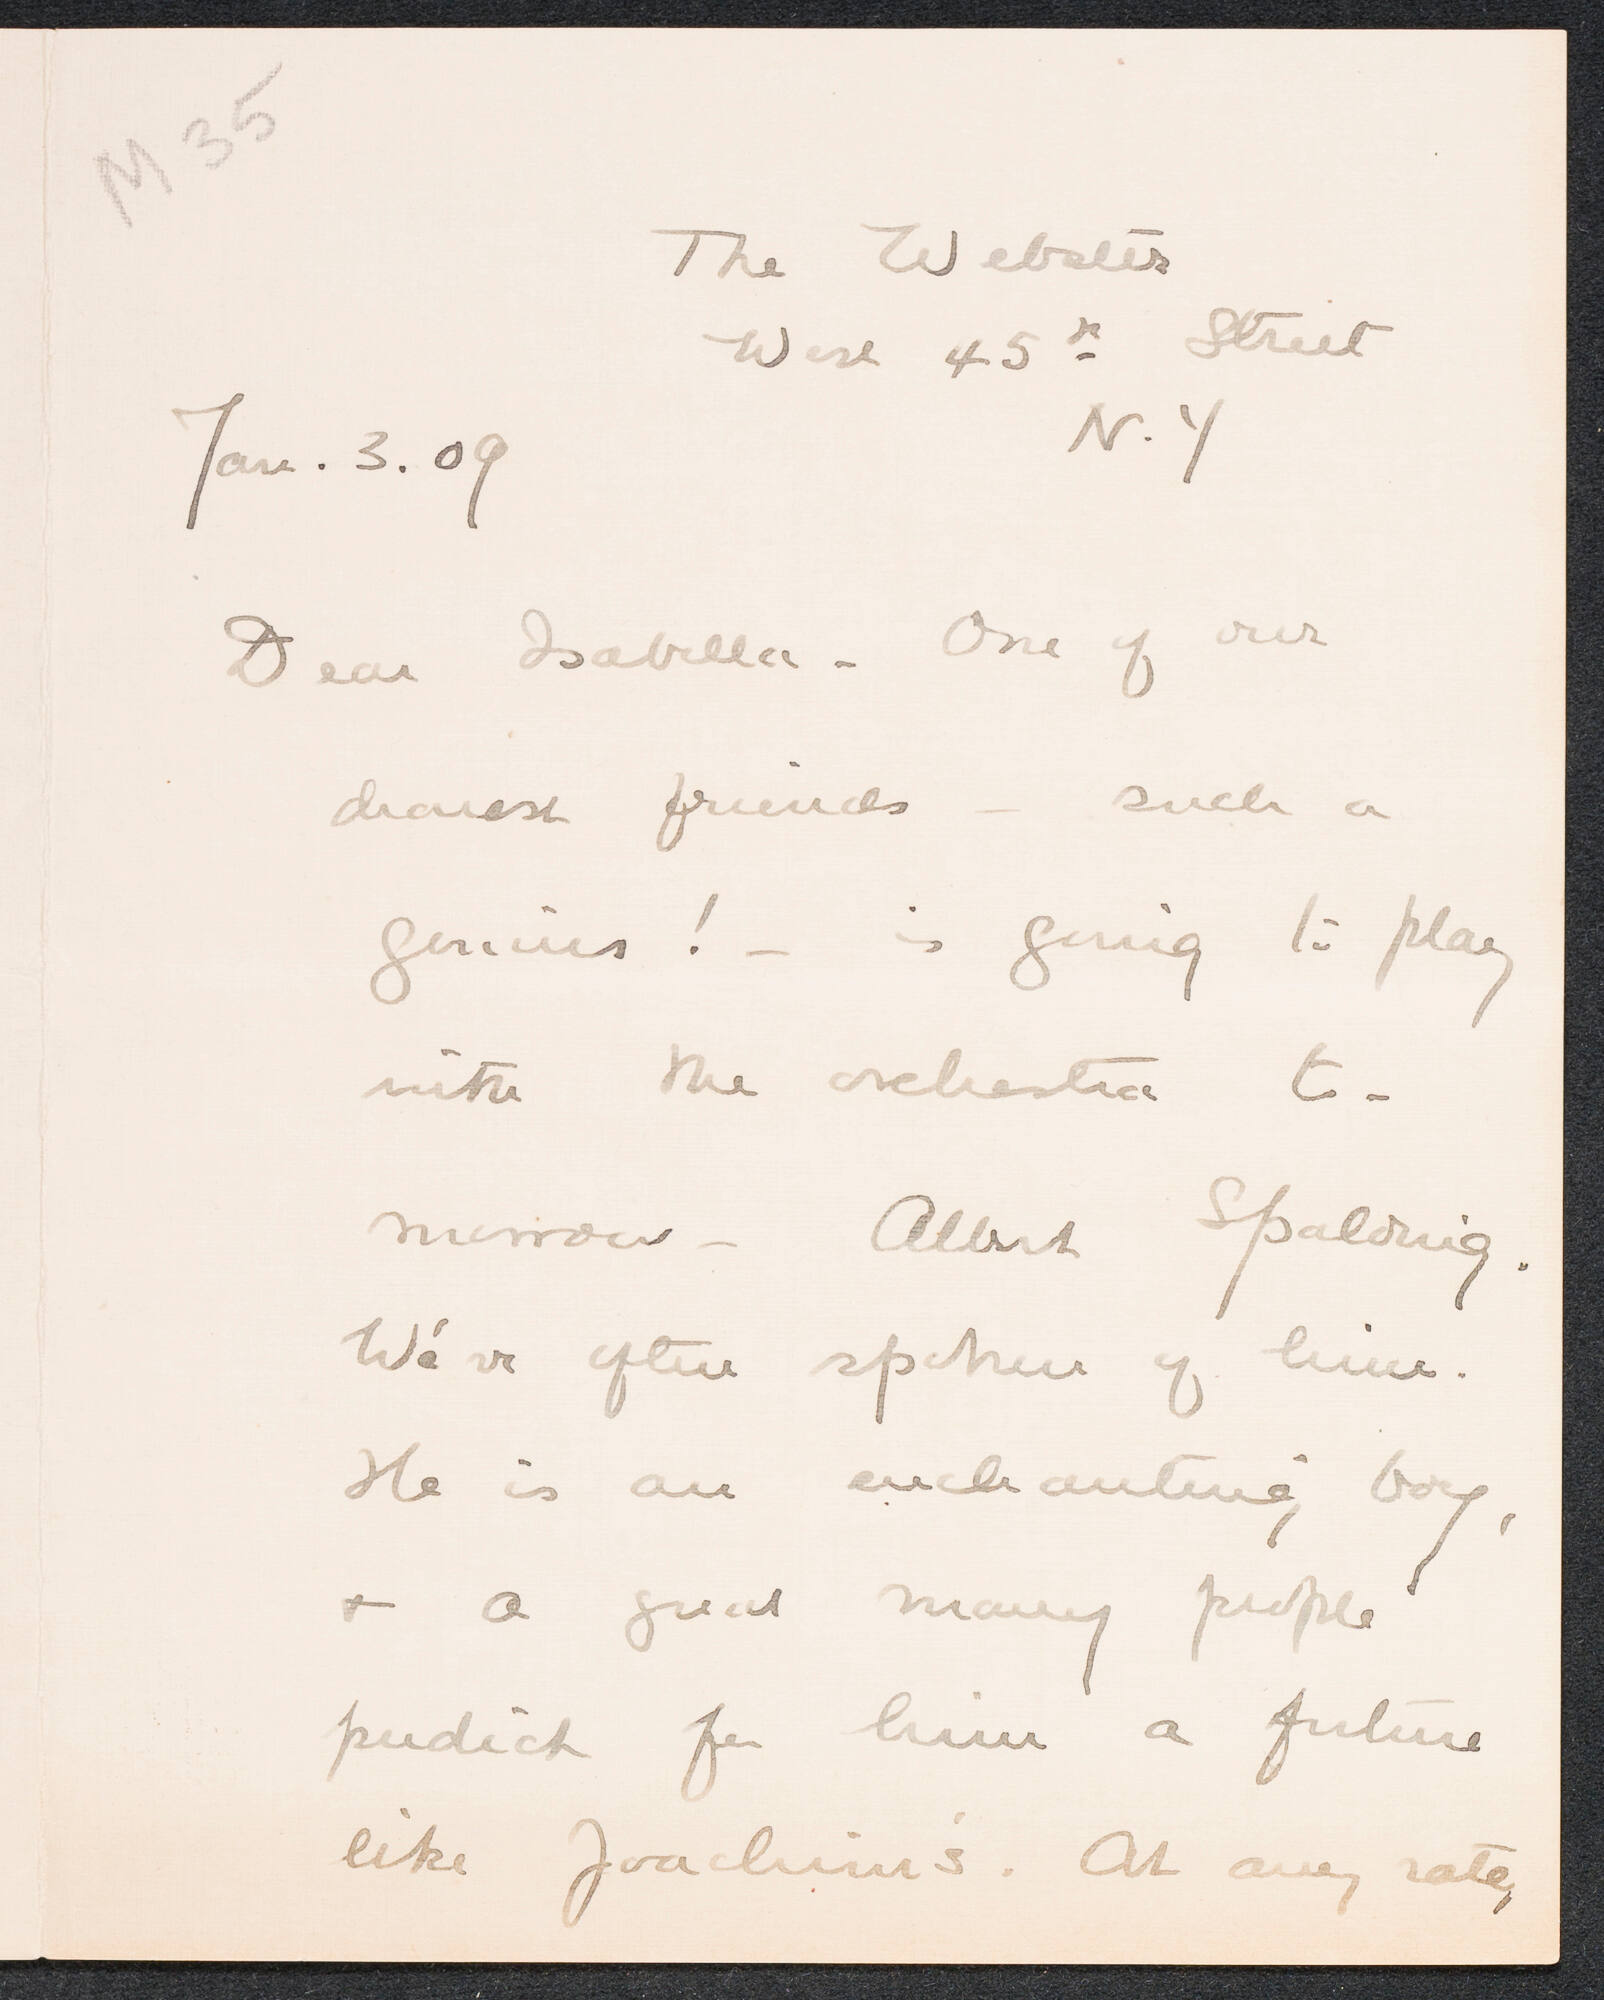 M 35
The Webster
West 45th Street
N.Y
Jan. 3. 09
Dear Isabella - One of our
dearest friends - such a
genius! - is going to play
with the orchestra to-
morrow - Albert Spalding.
We've often spoken of him.
He is an enchanting boy,
+ a great many people
predict for him a future
like Joachim's. At any rate,